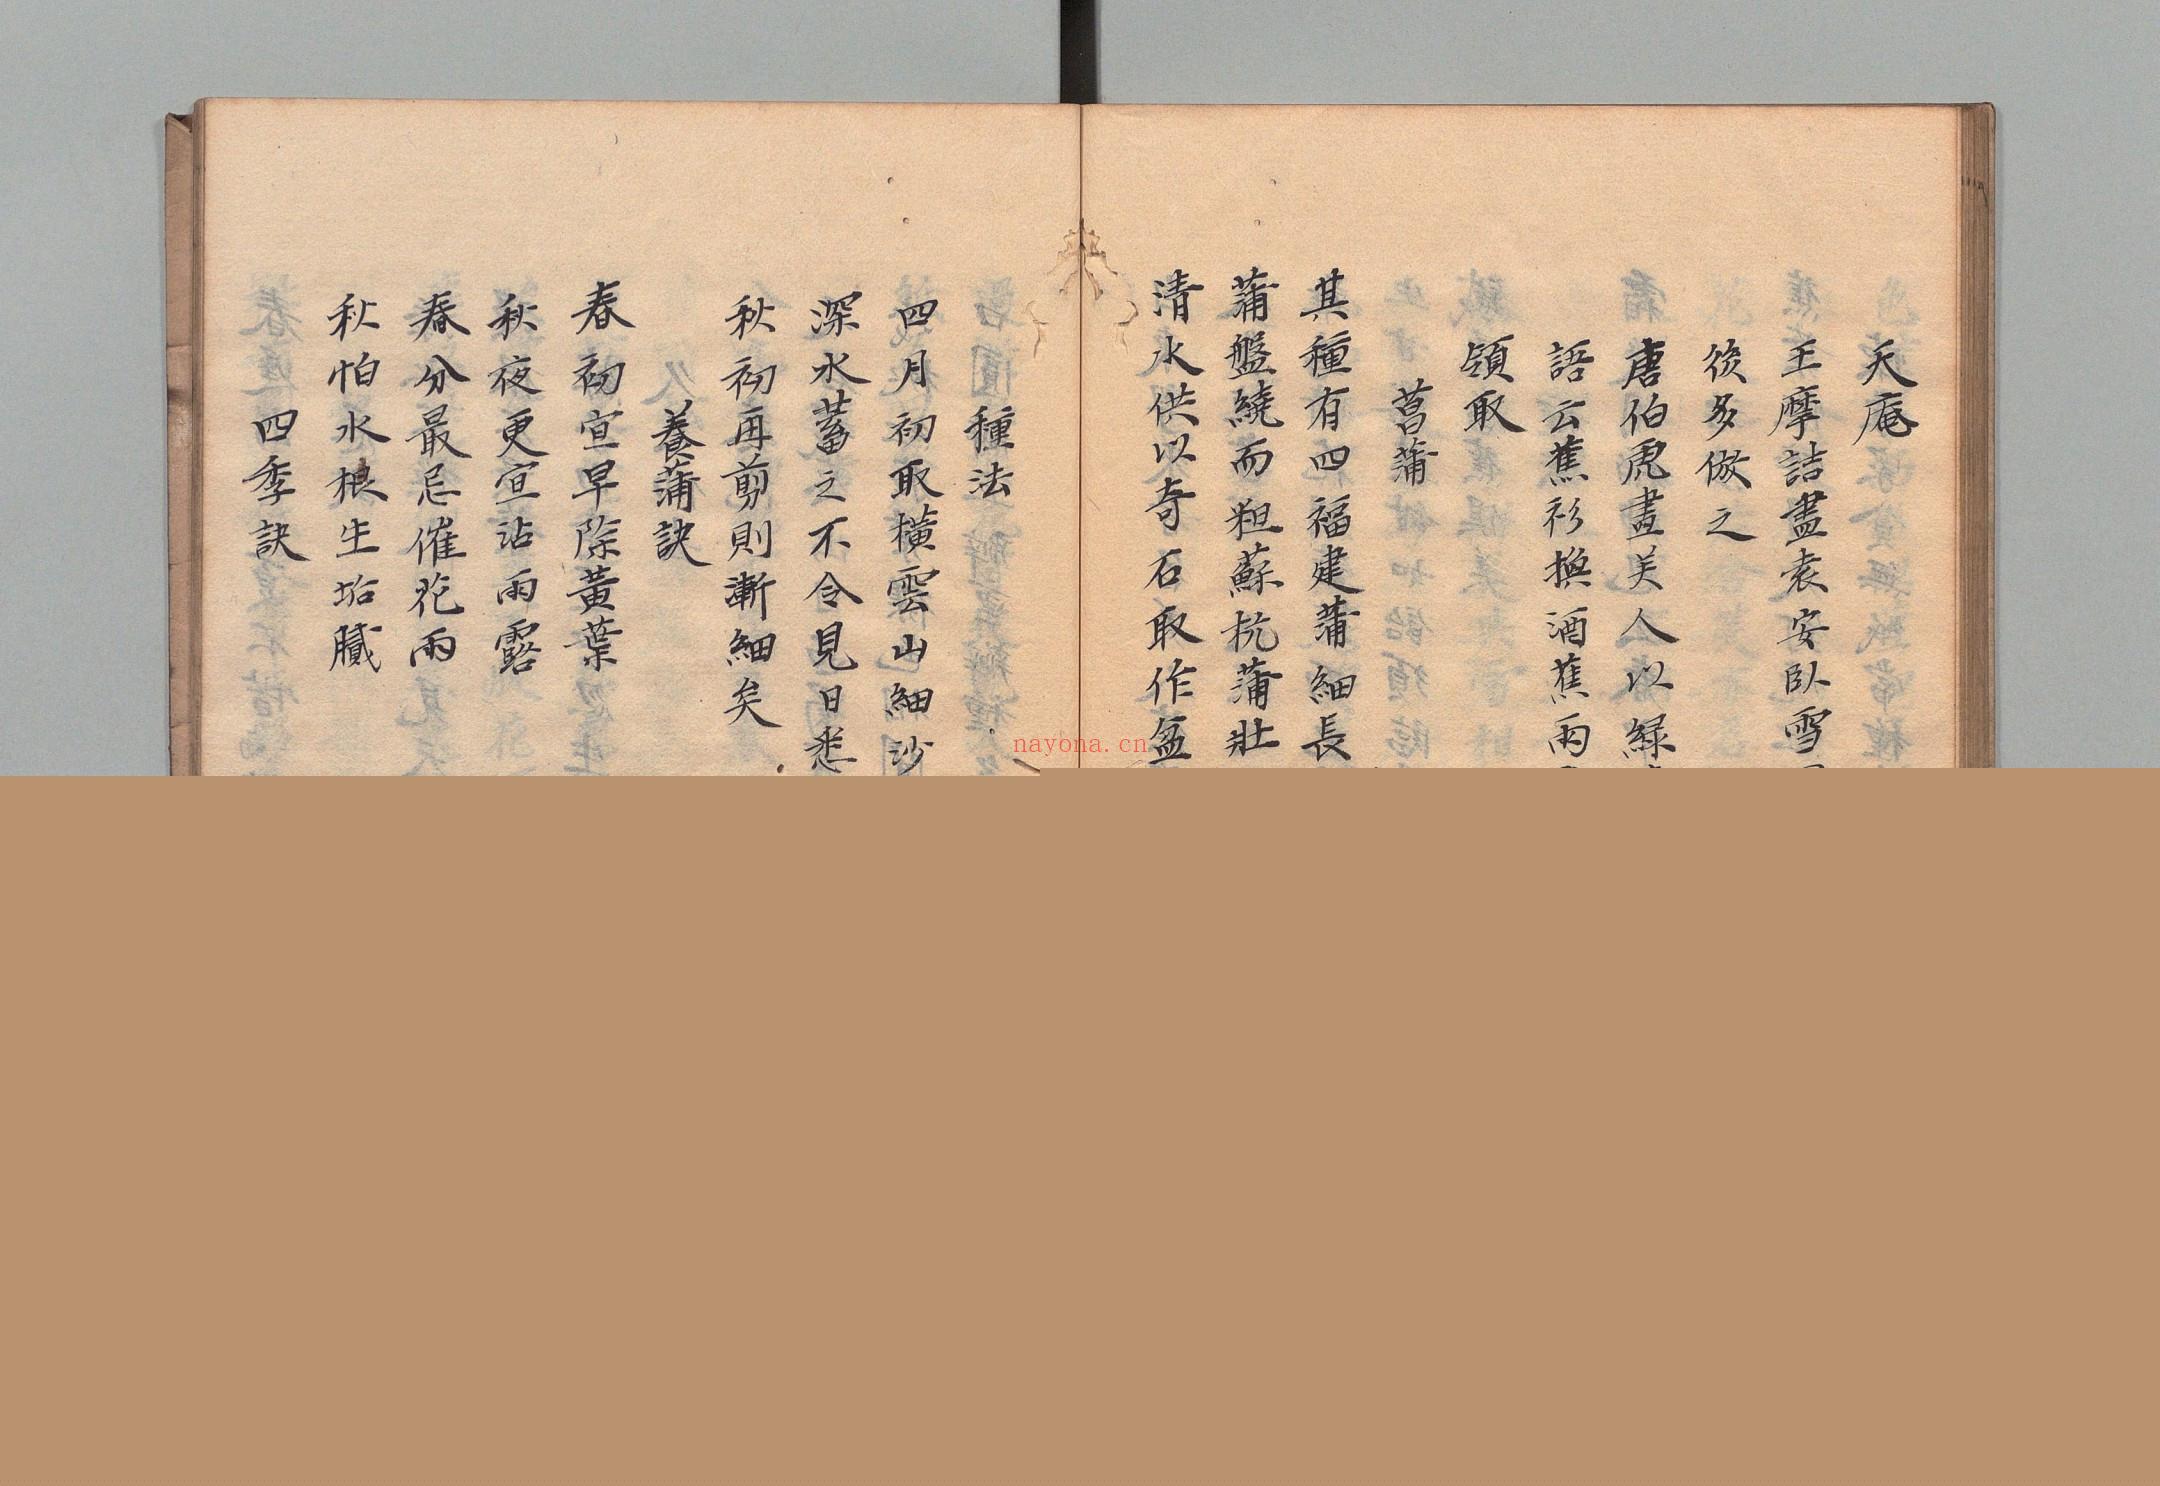 天庵
王摩詰畫袁安臥雪
後多倣之
唐伯虎畫美人以緑
語云蕉衫換酒蕉雨
領取
菖蒲
其種有四福建蒲細長
蒲盤繞而粗蘇杭蒲壯
清水供以奇石取作盆
種法
四月初取橫雲山細沙
深水蓄之不令見日悉
秋初再剪則漸細矣
養蒲訣
春初宜早除黃葉
秋夜更宜沾雨露
春分最忌催花雨
秋怕水根生垢膩
四季訣
nayona.cn